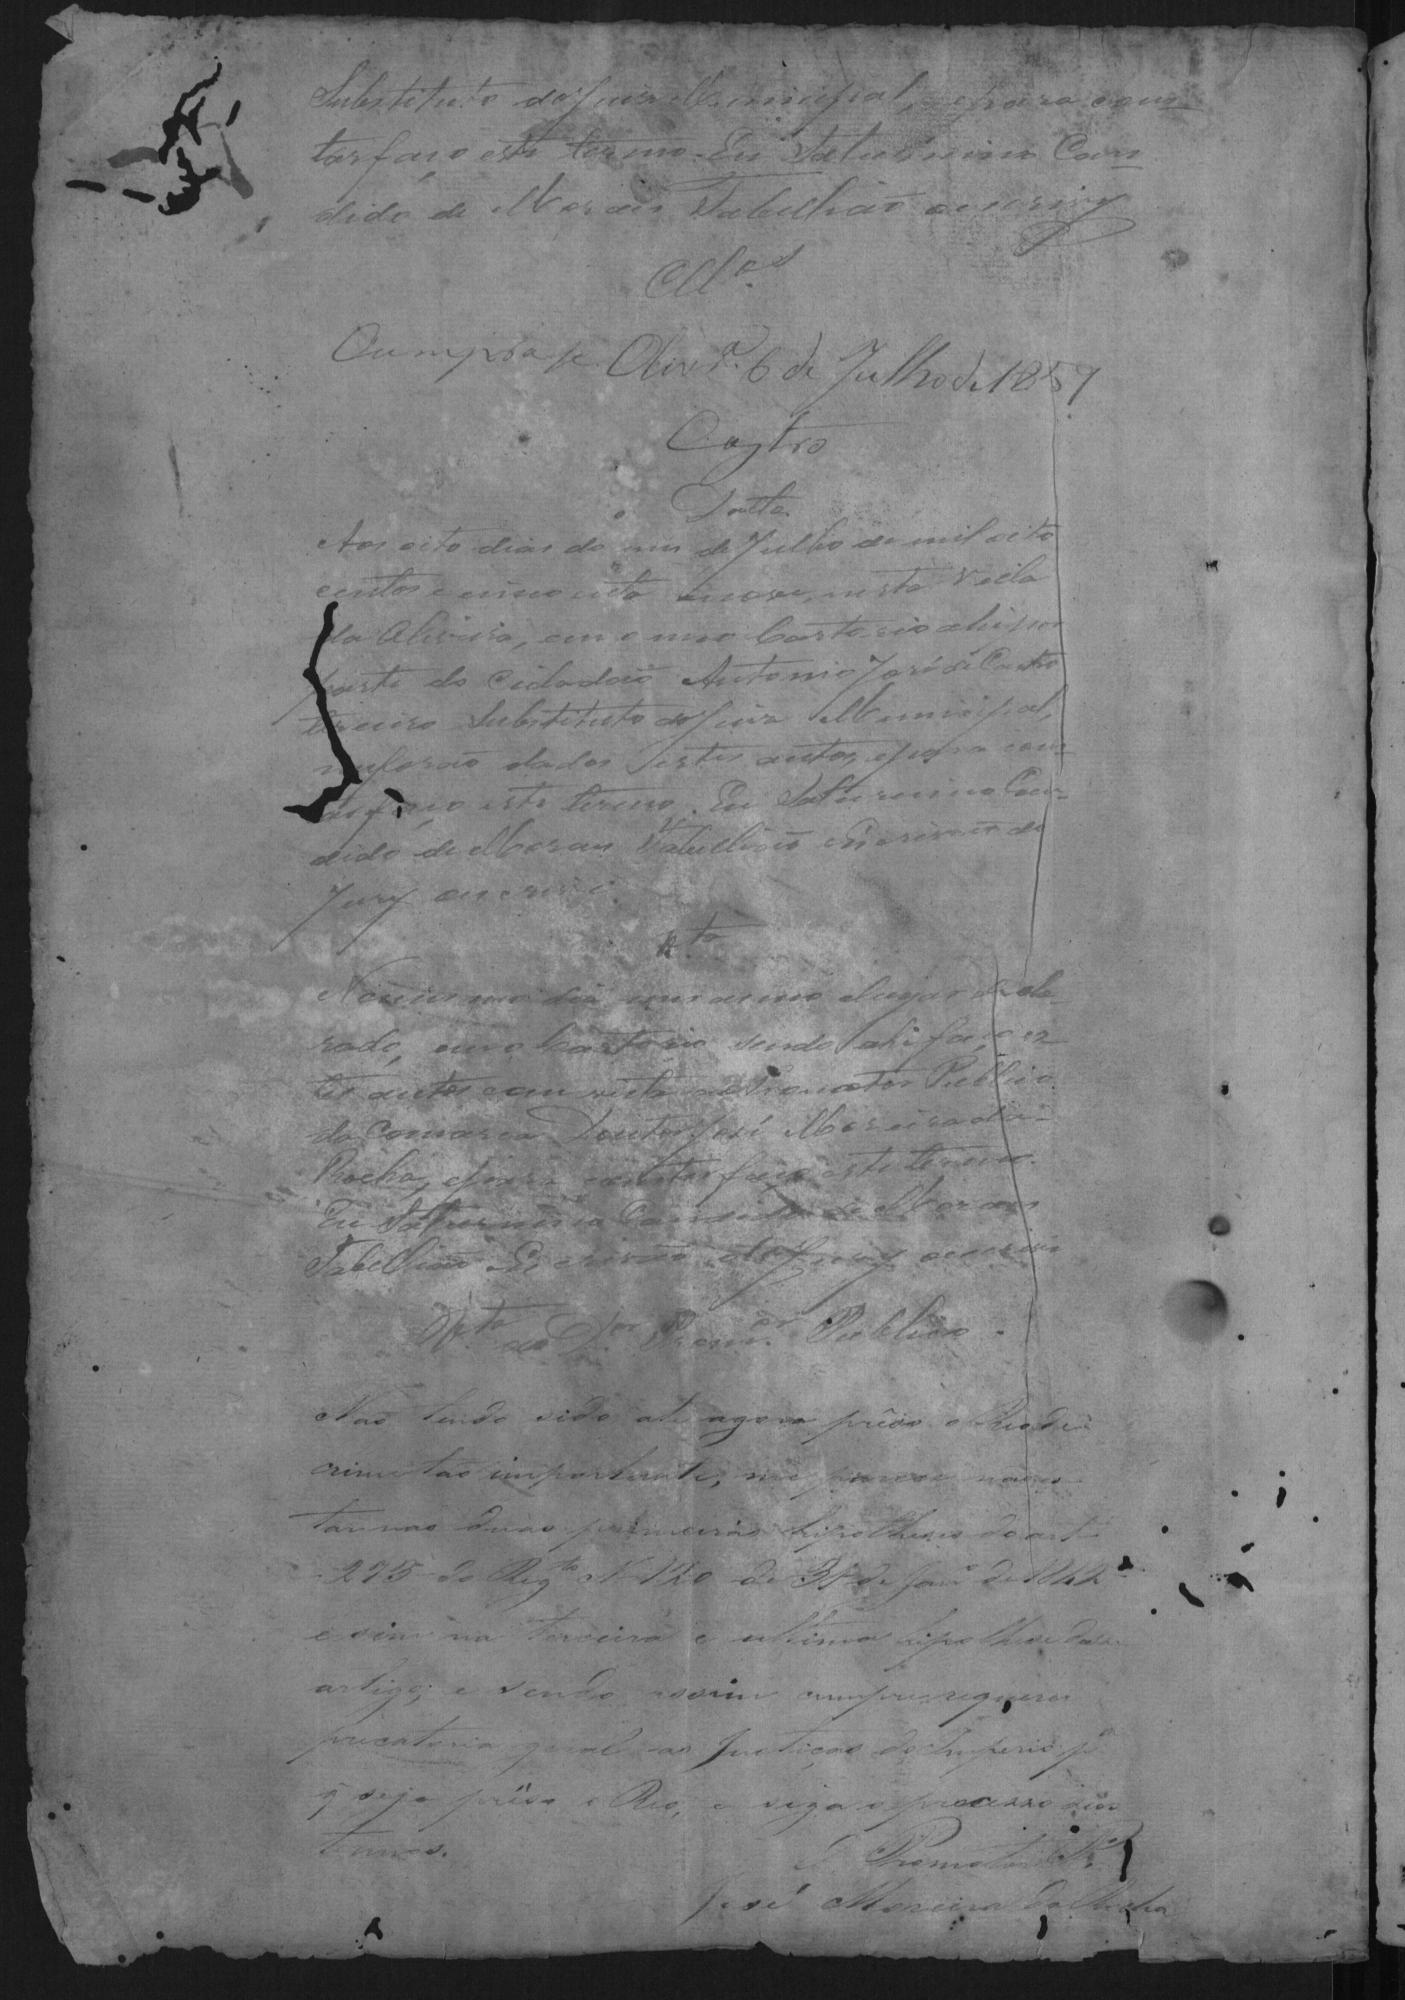 Substituto do Juiz Municipal, e para cons
tar faço este termo. Eu Saturnino Can
dido de Morais Tabelliaõ o escrevy
Cll.os
Cumpra-se Olivr.a 6 de Julho de 1859
Castro
Datta
Aos oito dias do mes de Julho de mil oito
centos e cincoenta e nove, nesta Villa
da Oliveira, em o meo Cartorio ahi por
parte do Cidadaõ Antonio José de Castro
terceiro Substituto do Juiz Municipal,
me foraõ dados estes autos, e para cons
tar faço este termo. Eu Saturnino Can-
dido de Morais Tabelliaõ Escrivaõ do
Jury o escrevi.
V.ta
No mesmo dia mes anno e lugar decla-
rado, em o Cartorio sendo ahi faço es
tes autos com vista ao Promotor Publico
da Comarca Doutor José Moreira da
Rocha, e para constar faço este termo.
Eu Saturnino Candido de Morais
Tabelliaõ Escrivaõ do Jury o escrevi
V.ta ao D.or Prom.or Publico.
Naõ tendo sido ate agora prêso o Reo de
crime taõ importante, me parece naõ es
tar nas duas primeiras hipotheses do art.
275 do Reg.to N. 120 de 31 de Jan.o de 1842
e sim na terceira e ultima hipothese do
artigo; e sendo assim cumpre requerer
precatoria geral as Justiças do Imperio p.a
q seja prêso o Reo, e siga o processo seos
termos.
O Promotor P.o
José Moreira da Rocha